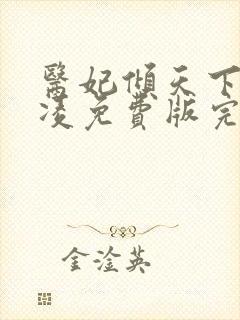 醫妃傾天下
凌免費版完
金淦英